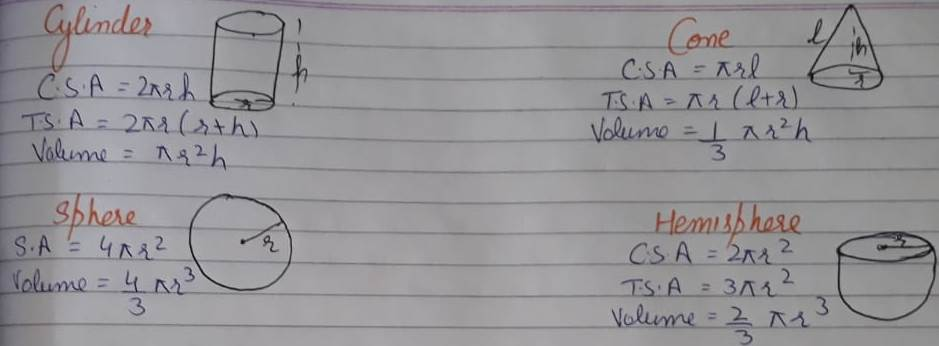 Cylinder
h
r
C.S.A = 2πrh
T.S.A = 2πr(r+h)
Volume = πr²h
Cone
l
h
r
C.S.A = πrl
T.S.A = πr (l+r)
Volume = 1/3 πr²h
Sphere
r
S.A = 4πr²
Volume = 4/3 πr³
Hemisphere
r
C.S.A = 2πr²
T.S.A = 3πr²
Volume = 2/3 πr³